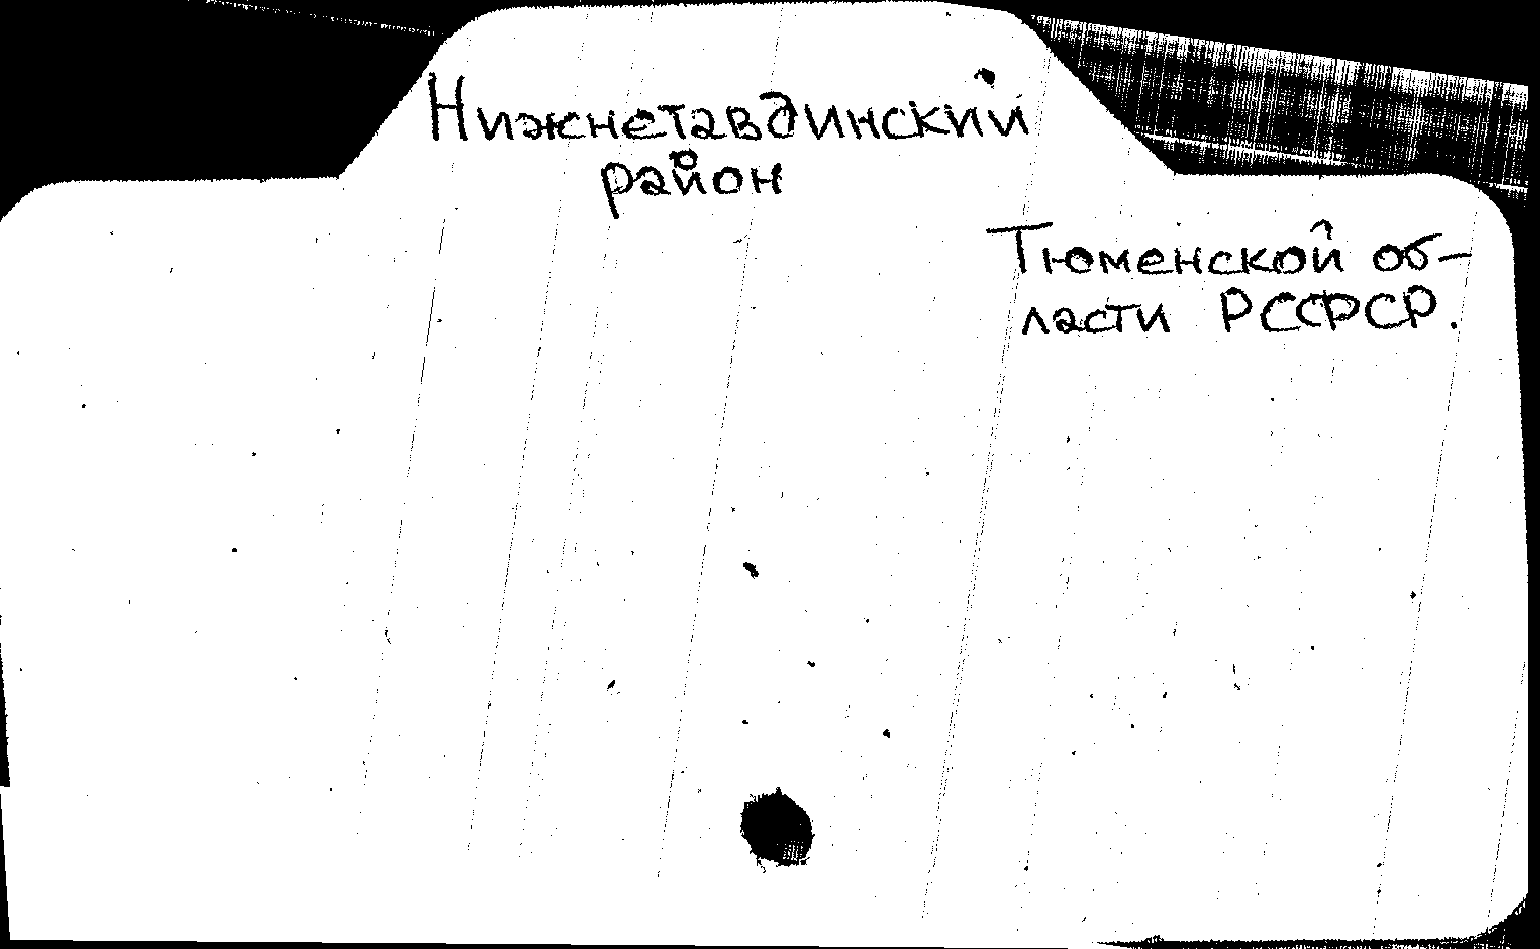 Нижнетавдинский
район
Тюменской об-
ласти РСФСР.